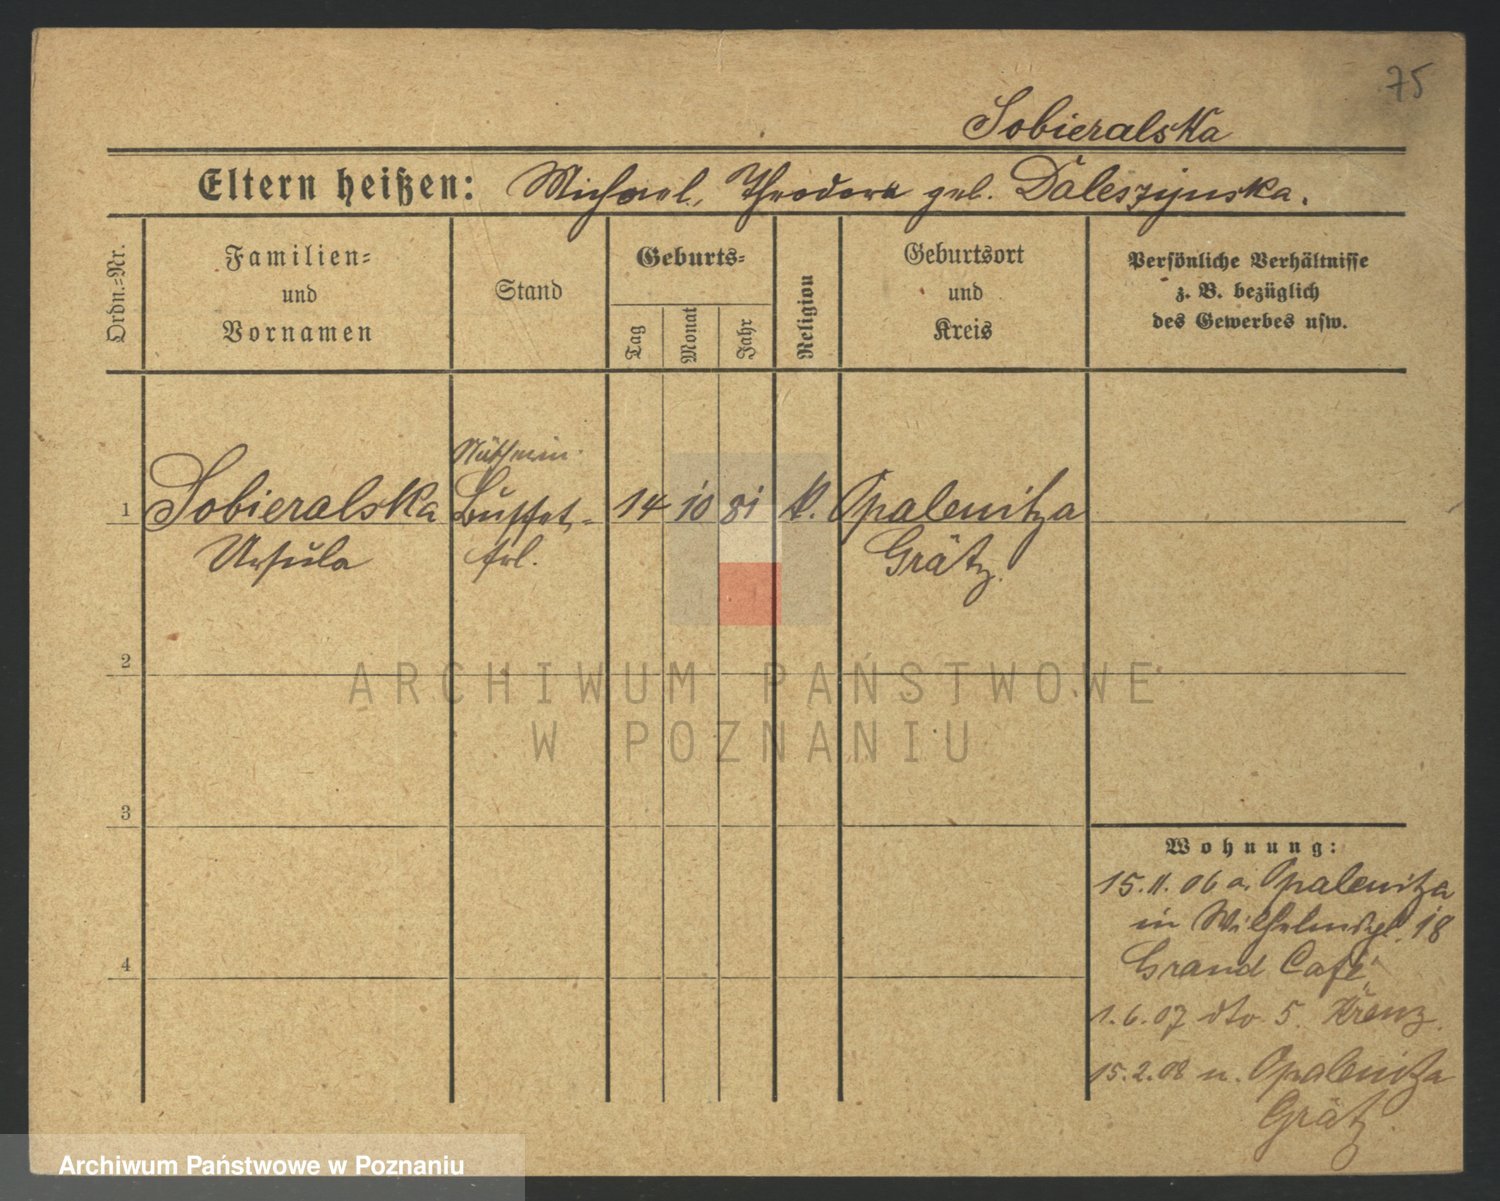 75
Sobieralska
Eltern heißen: Michael, Theodora geb. Daleszynska.
Ordn.-Nr.
Familien-
und
Vornamen
Stand
Geburts-
Tag
Monat
Jahr
Religion
Geburtsort
und
Kreis
Persönliche Verhältnisse
z. B. bezüglich
des Gewerbes usw.
Näherin
1 Sobieralska Buffet- 14 10 81 k. Opalenitza
Ursula frl. Grätz.
2
ARCHIWUM PAŃSTWOWE
W POZNANIU
3
Wohnung:
15.11.06 a. Opalenitza
in Wilhelmspl. 18
Grand Café
4
1.6.07 dto 5. Krenz.
15.2.08 n. Opalenitza
Grätz.
Archiwum Państwowe w Poznaniu